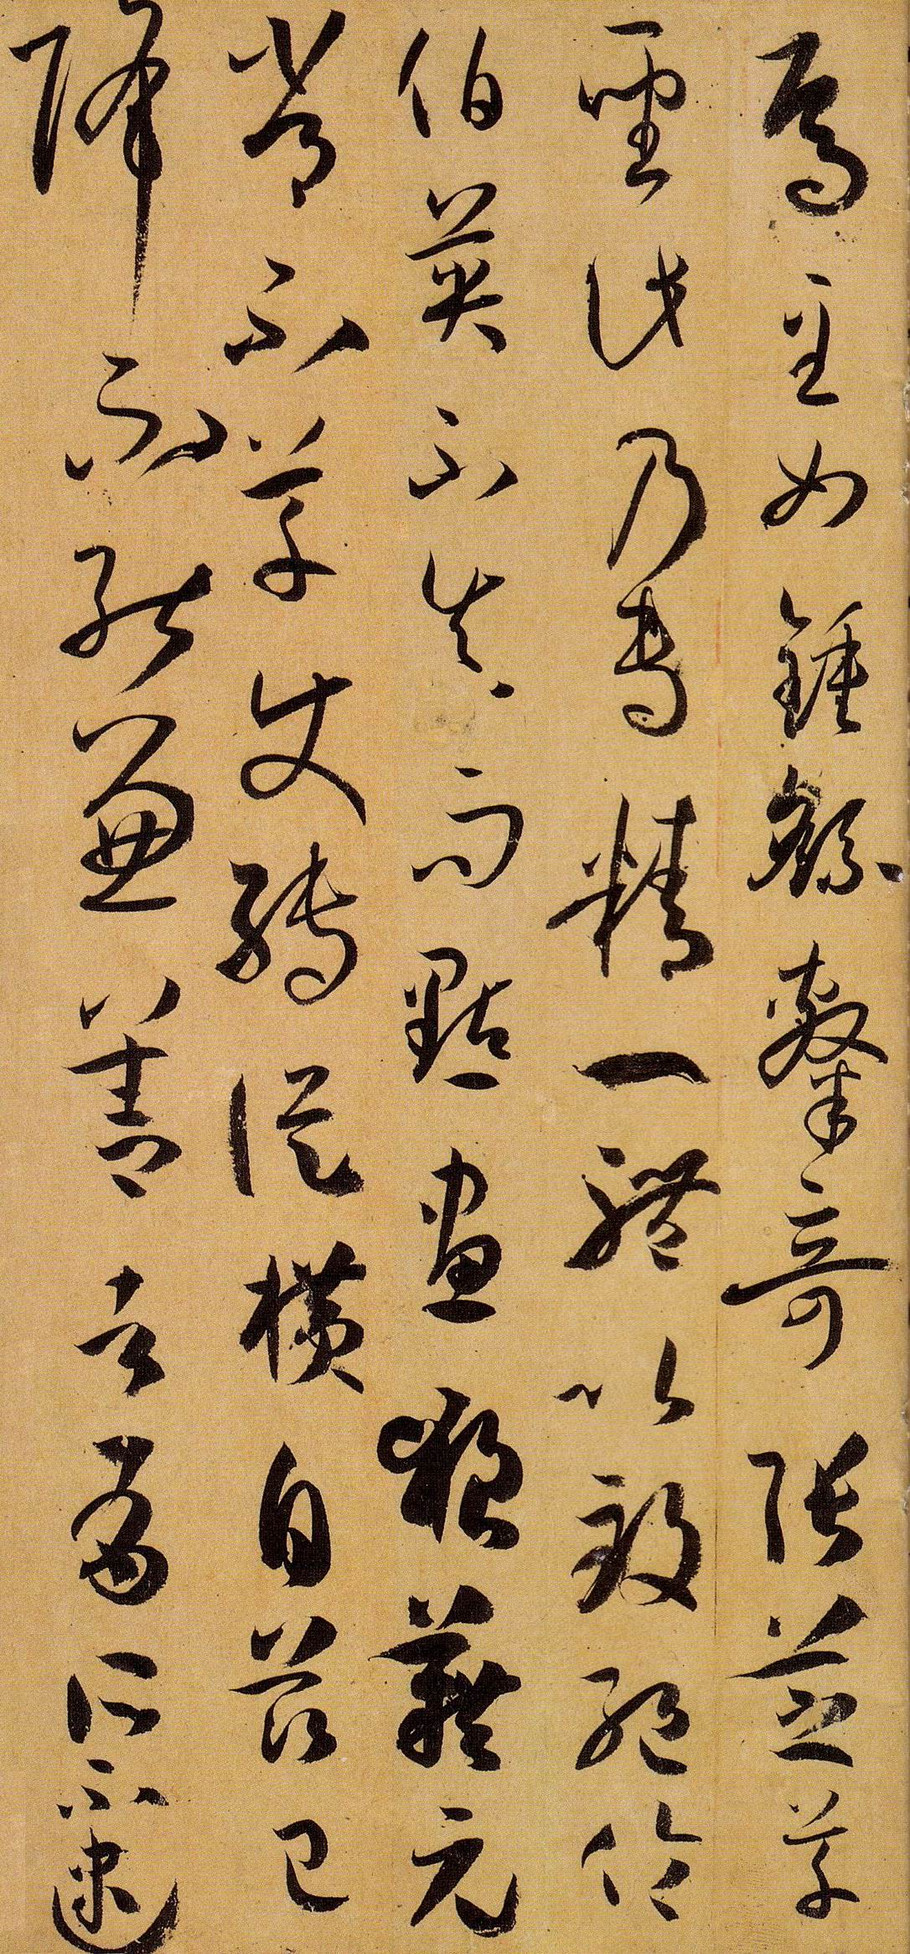 焉至如鍾繇隸奇張芝草
聖此乃專精一體以致絕倫
伯英不真而點畫狼藉元
常不草使轉縱橫自茲已
降不能兼善者有所不逮